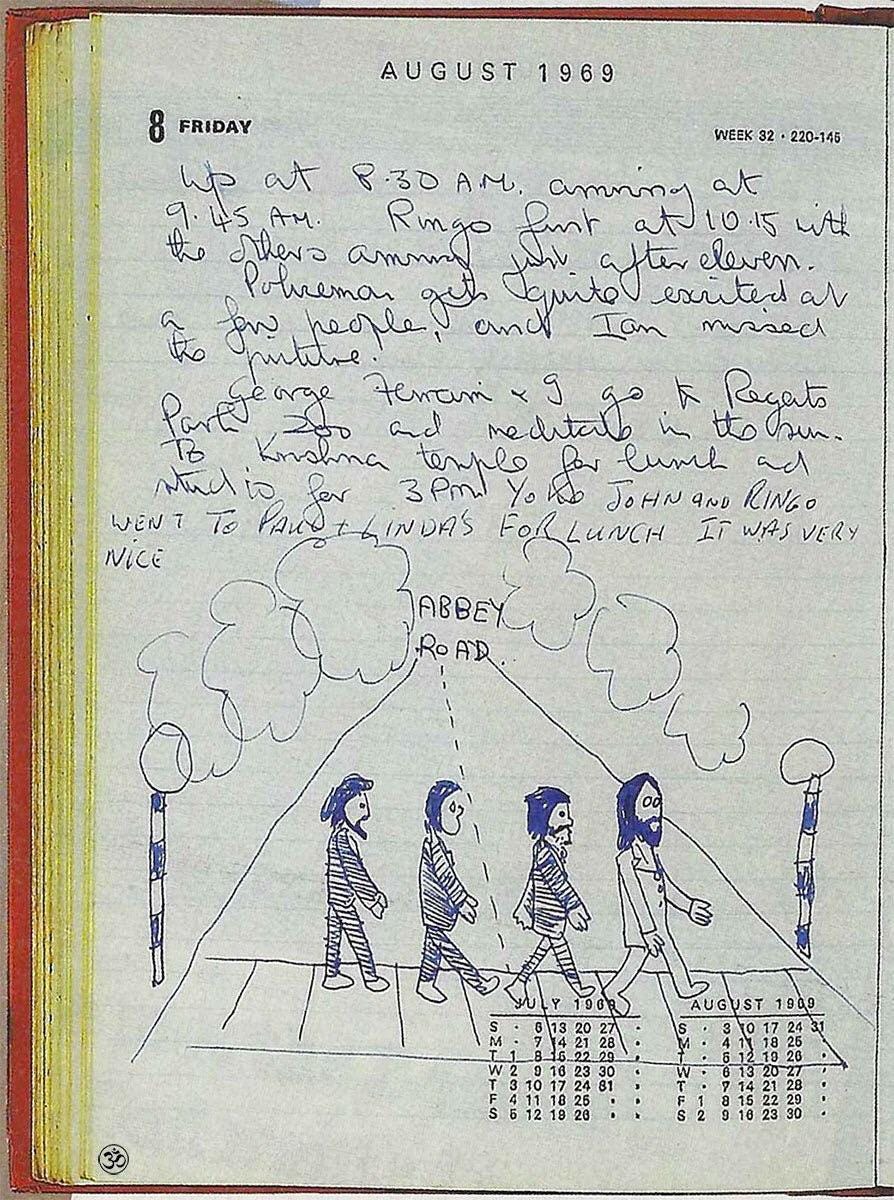 AUGUST 1969
8 FRIDAY
WEEK 32 · 220-145
Up at 8.30 A.M. arriving at
9.45 AM. Ringo first at 10.15 with
the others arriving just after eleven.
Policeman gets quite excited at
a few people, and Ian missed
the picture.
George Ferrari & I go to Regents
Park Zoo and meditate in the sun.
To Krishna temple for lunch and
studio for 3 PM Yoko JOHN AND RINGO
WENT TO PAUL + LINDA'S FOR LUNCH IT WAS VERY
NICE
ABBEY
ROAD.
JULY 1969 AUGUST 1969
S · 6 13 20 27 · S · 3 10 17 24 31
M · 7 14 21 28 · M · 4 11 18 25 ·
T 1 8 15 22 29 · T · 5 12 19 26 ·
W 2 9 16 23 30 · W · 6 13 20 27 ·
T 3 10 17 24 31 · T · 7 14 21 28 ·
F 4 11 18 25 · · F 1 8 15 22 29 ·
S 5 12 19 26 · · S 2 9 16 23 30 ·
ॐ